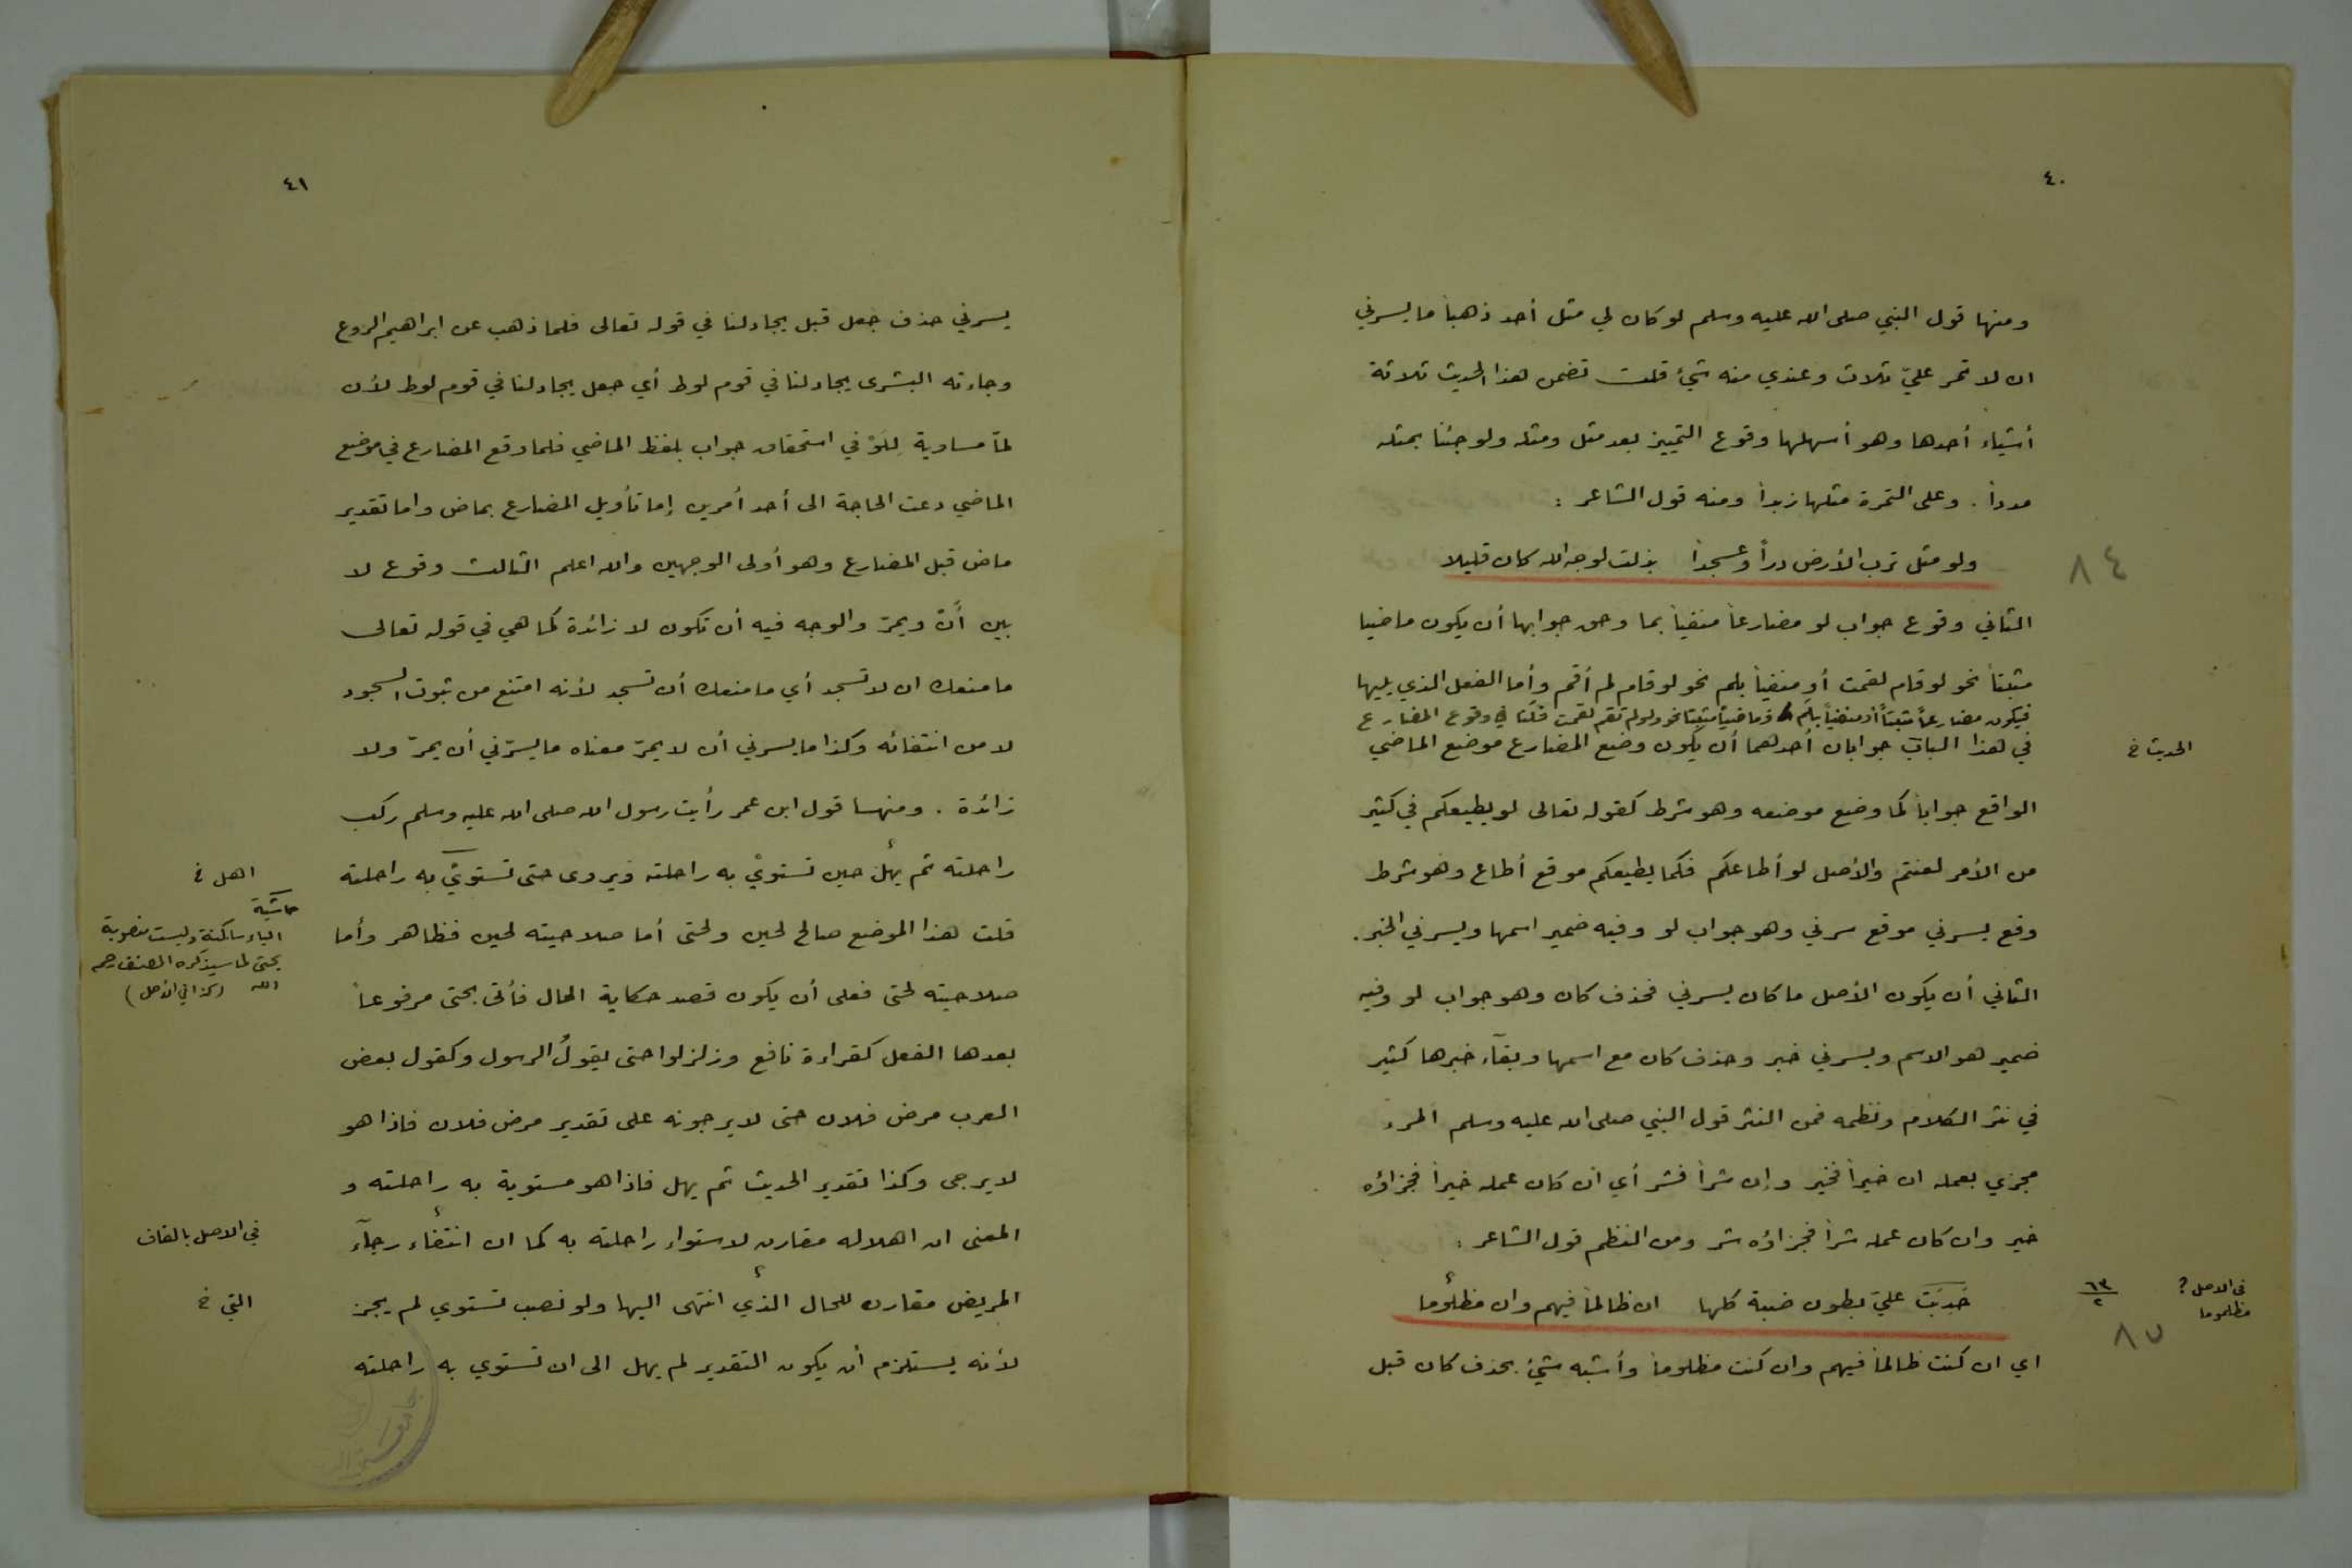 ٤٠
ومنها قول النبي صلى الله عليه وسلم لو كان لي مثل أحد ذهباً ما يسرني
ان لا تمر عليّ ثلاث وعندي منه شيء قلت تضمن هذا الحديث ثلاثة
أشياء أحدها وهو أسهلها وقوع التمييز بعد مثل ومثله ولو جئنا بمثله
مدداً . وعلى التمرة مثلها زبداً ومنه قول الشاعر :
ولو مثل ترب الأرض دراً وعسجداً بذلت لوجه الله كان قليلا
٨٤
الثاني وقوع جواب لو مضارعاً منفياً بما وحق جوابها أن يكون ماضيا
مثبتاً نحو لو قام لقمت أو منفياً بلم نحو لو قام لم أقم وأما الفعل الذي يليها
فيكون مضارعاً مثبتاً أو منفياً بلم أو ماضياً مثبتا نحو لو لم تقم لقمت قلنا في وقوع المضارع
في هذا الباب جوابان أحدهما أن يكون وضع المضارع موضع الماضي
الحديث خ
الواقع جواباً كما وضع موضعه وهو شرط كقوله تعالى لو يطيعكم في كثير
من الأمر لعنتم والأصل لو أطاعكم فكما يطيعكم موقع أطاع وهو شرط
وقع يسرني موقع سرني وهو جواب لو وفيه ضمير اسمها ويسرني الخبر.
الثاني أن يكون الأصل ما كان يسرني فحذف كان وهو جواب لو وفيه
ضمير هو الاسم ويسرني خبر وحذف كان مع اسمها وبقآء خبرها كثير
في نثر الكلام ونظمه فمن النثر قول النبي صلى الله عليه وسلم المرء
مجزي بعمله ان خيراً فخير وإن شراً فشر أي ان كان عمله خيراً فجزاؤه
خير وان كان عمله شراً فجزاؤه شر ومن النظم قول الشاعر :
حَدِبَتْ عليّ بطون ضبة كلها ان ظالماً فيهم وان مظلوما
٦٣
٢
في الاصل ؟
مظلموما
٨٥
اي ان كنت ظالماً فيهم وان كنت مظلوماً وأشبه شيء بحذف كان قبل
٤١
يسرني حذف جعل قبل يجادلنا في قوله تعالى فلما ذهب عن ابراهيم الروع
وجاءته البشرى يجادلنا في قوم لوط أي جعل يجادلنا في قوم لوط لأن
لمّا مساوية لِلَوْ في استحقاق جواب بلفظ الماضي فلما وقع المضارع في موضع
الماضي دعت الحاجة الى أحد أمرين إما تأويل المضارع بماض واما تقدير
ماض قبل المضارع وهو أولى الوجهين والله اعلم الثالث وقوع لا
بين أن ويمرّ والوجه فيه أن تكون لا زائدة كما هي في قوله تعالى
ما منعك ان لا تسجد أي ما منعك أن تسجد لأنه امتنع من ثبوت السجود
لا من انتفائه وكذا ما يسرني أن لا يمرّ معناه ما يسرّني أن يمرّ ولا
زائدة . ومنها قول ابن عمر رأيت رسول الله صلى الله عليه وسلم ركب
راحلته ثم يهل حين تستويْ به راحلته ويروى حتى تستويْ به راحلته
اهل خ
حاشية
الياء ساكنة وليست منصوبة
بحتى لما سيذكره المصنف رحمه
الله (كذا في الأصل)
قلت هذا الموضع صالح لحين ولحتى أما صلاحيته لحين فظاهر وأما
صلاحيته لحتى فعلى أن يكون قصد حكاية الحال فأتى بحتى مرفوعاً
بعدها الفعل كقراءة نافع وزلزلوا حتى يقولُ الرسول وكقول بعض
العرب مرض فلان حتى لا يرجونه على تقدير مرض فلان فاذا هو
لا يرجى وكذا تقدير الحديث ثم يهل فاذا هو مستوية به راحلته و
المعنى ان اهلاله مقارن لاستواء راحلته به كما ان انتفاء رجآء
في الاصل بالقاف
المريض مقارن للحال الذي انتهى اليها ولو نصب تستوي لم يجز
التي خ
لأنه يستلزم أن يكون التقدير لم يهل الى ان تستوي به راحلته